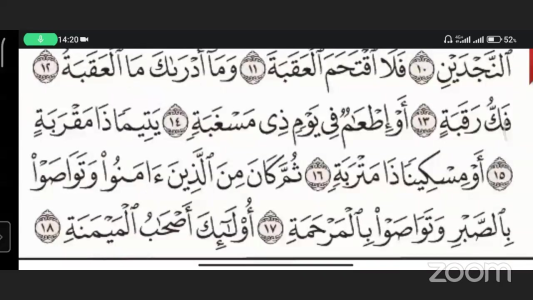 14:20 52%
ٱلنَّجْدَيْنِ ١٠ فَلَا ٱقْتَحَمَ ٱلْعَقَبَةَ ١١ وَمَآ أَدْرَىٰكَ مَا ٱلْعَقَبَةُ ١٢
فَكُّ رَقَبَةٍ ١٣ أَوْ إِطْعَٰمٌ فِي يَوْمٍ ذِي مَسْغَبَةٍ ١٤ يَتِيمًا ذَا مَقْرَبَةٍ
١٥ أَوْ مِسْكِينًا ذَا مَتْرَبَةٍ ١٦ ثُمَّ كَانَ مِنَ ٱلَّذِينَ ءَامَنُوا۟ وَتَوَاصَوْا۟
بِٱلصَّبْرِ وَتَوَاصَوْا۟ بِٱلْمَرْحَمَةِ ١٧ أُو۟لَٰٓئِكَ أَصْحَٰبُ ٱلْمَيْمَنَةِ ١٨
zoom